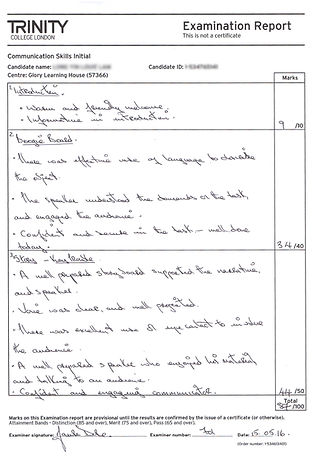 TRINITY
COLLEGE LONDON
Examination Report
This is not a certificate
Communication Skills Initial
Candidate name:
Candidate ID:
Centre: Glory Learning House (57366)
Marks
1 Introduction
• Warm and friendly welcome.
• Informative in introduction.
9 /10
2 Boogie Board.
• There was effective use of language to describe
the object.
• The speaker understood the demands of the task,
and engaged the audience.
• Confident and secure in the task - well done
today.
34/40
3 Story -
• A well prepared storyboard supported the narrative,
and speaker.
• Voice was clear, and well projected.
• There was excellent use of eye contact to involve
the audience.
• A well prepared speaker who enjoyed his material
and talking to an audience.
• Confident and engaging communicator.
44/50
Total
87/100
Marks on this Examination report are provisional until the results are confirmed by the issue of a certificate (or otherwise).
Attainment Bands - Distinction (85 and over), Merit (75 and over), Pass (65 and over).
Examiner signature:
Examiner number:
Date: 15.05.16.